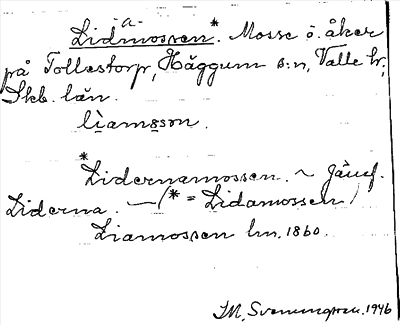 Lidmossen.* Mosse ö. åker
-a-
på Tollestorp, Häggum s:n, Valle hr,
Skb. län.
lìamsson.
*Lidernamossen. ~ Jämf.
Liderna. — (* = Lidamossen)
Liamossen hn. 1860.
1946